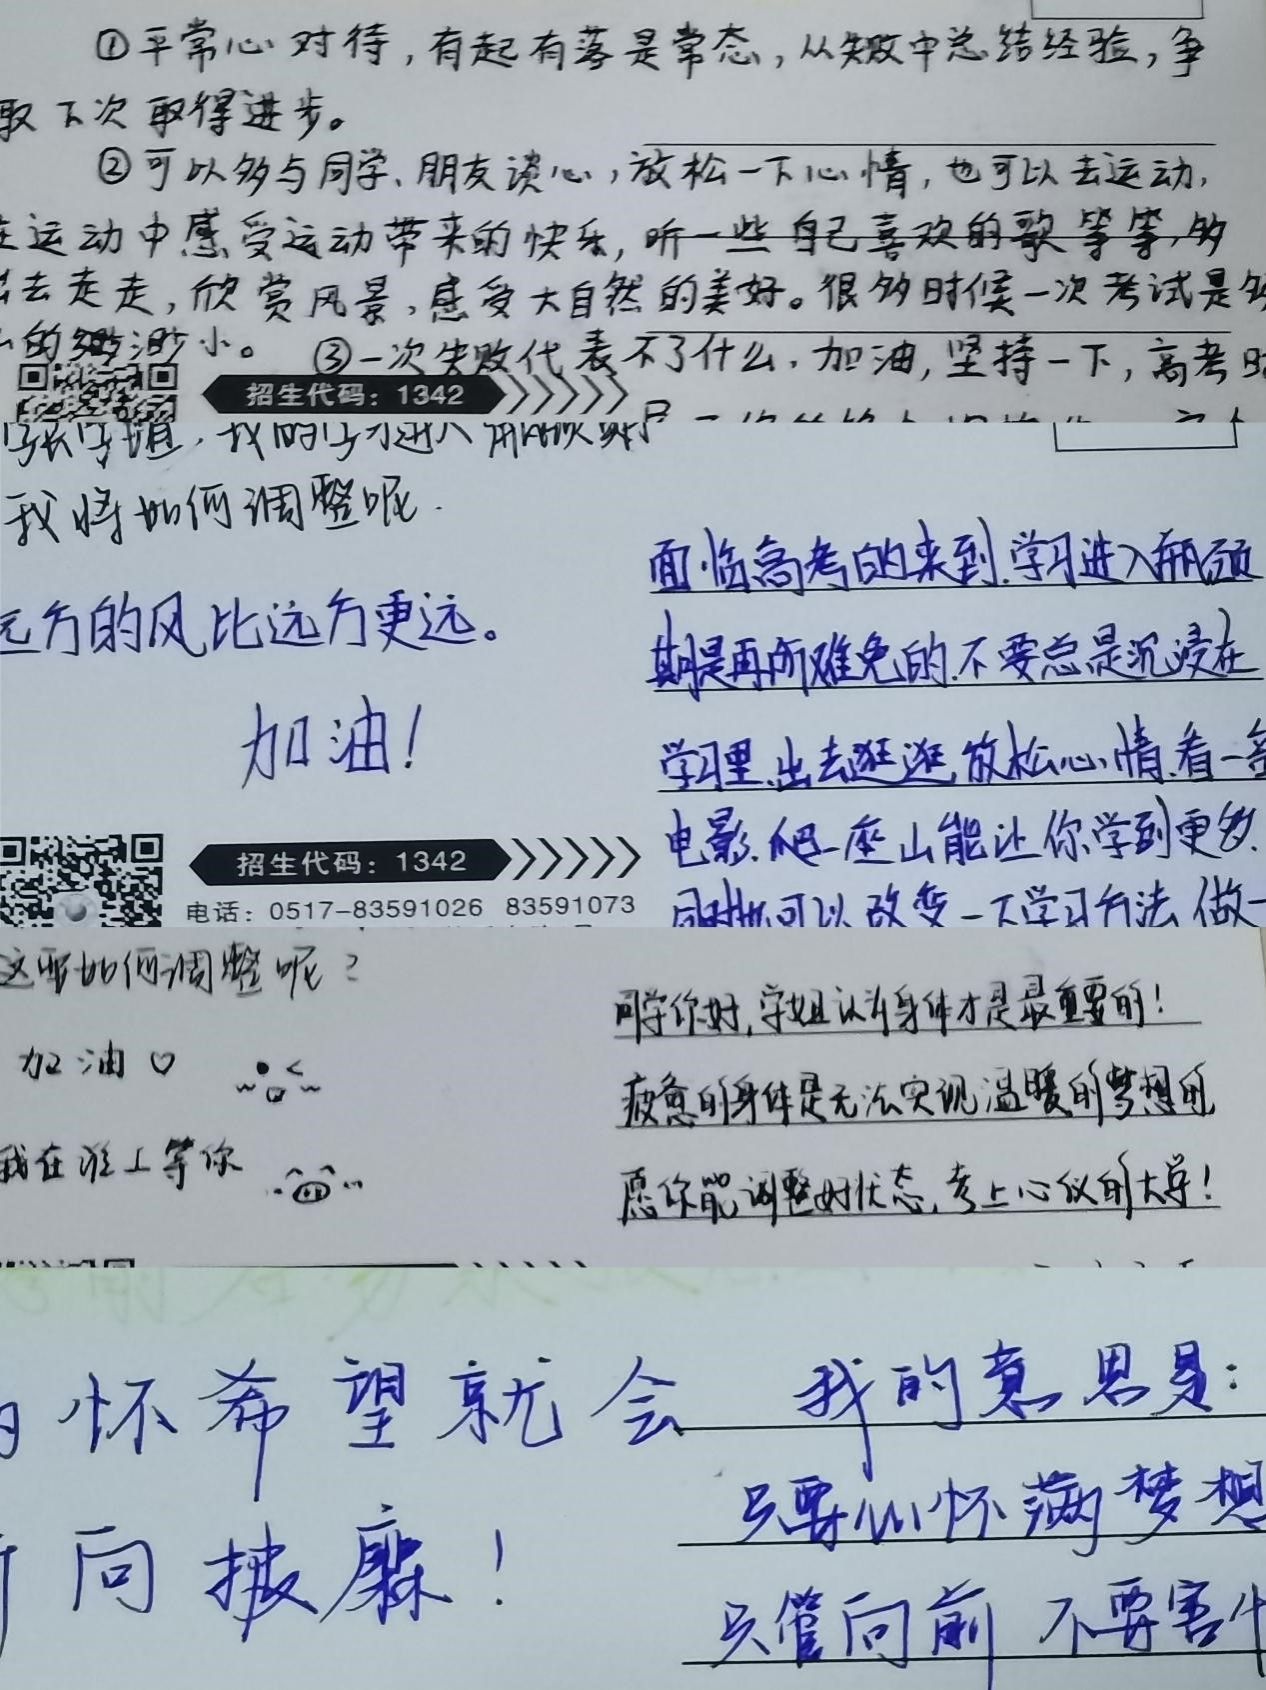 ①平常心对待,有起有落是常态,从失败中总结经验,争
取下次取得进步。
②可以多与同学、朋友谈心,放松一下心情,也可以去运动,
在运动中感受运动带来的快乐,听一些自己喜欢的歌等等,多
出去走走,欣赏风景,感受大自然的美好。很多时候一次考试是多
么的渺小。 ③一次失败代表不了什么,加油,坚持一下,高考
招生代码:1342
我将如何调整呢.
远方的风比远方更远。
加油!
招生代码:1342
电话:0517-83591026 83591073
面临高考的来到.学习进入瓶颈
期是再所难免的.不要总是沉浸在
学习里.出去逛逛.放松心情.看一
电影.爬一座山能让你学到更多.
同时也可以改变一下学习方法 做一
这要如何调整呢?
加油♡
我在淮上等你
同学你好,学姐认为身体才是最重要的!
疲惫的身体是无法实现温暖的梦想的
愿你能调整好状态,考上心仪的大学!
怀希望就会
向披靡!
我的意思是:
只要心怀满梦想
只管向前 不要害